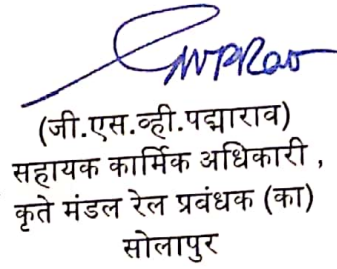 (जी.एस.व्ही.पद्माराव)
सहायक कार्मिक अधिकारी ,
कृते मंडल रेल प्रवंधक (का)
सोलापुर